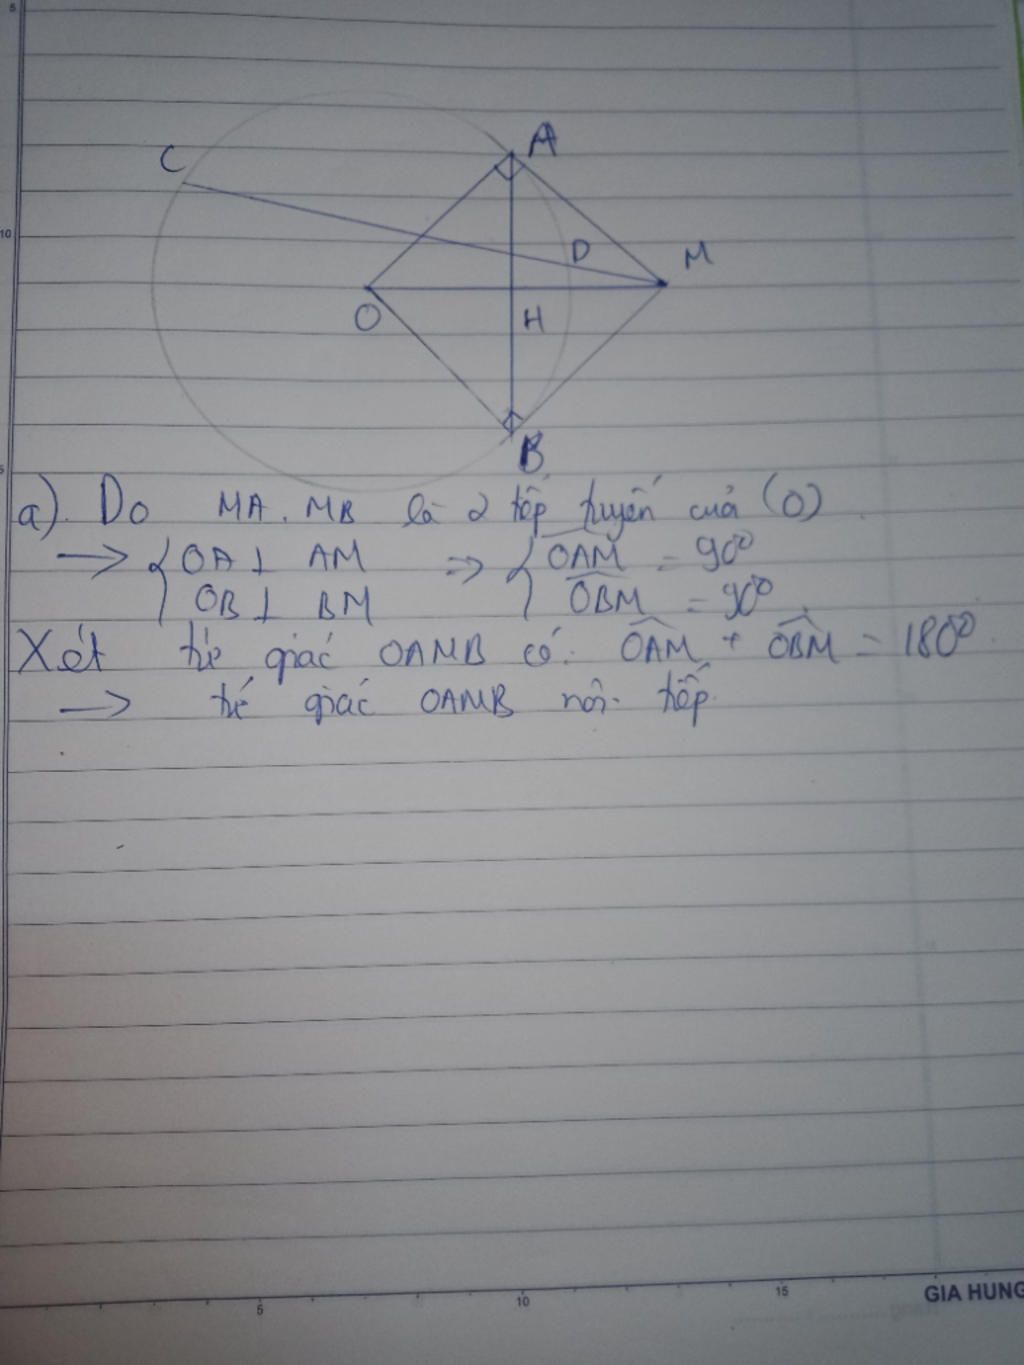 5
C
A
10
D
M
O
H
B
5
a). Do MA, MB là 2 tiếp tuyến của (O)
→ { OA ⊥ AM ⇒ { OAM = 90°
OB ⊥ BM OBM = 90°
Xét tứ giác OAMB có: OAM + OBM = 180°
→ tứ giác OAMB nội tiếp.
5
10
15
GIA HUNG